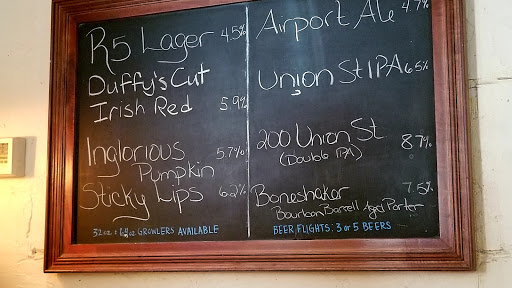 R5 Lager 4.5%
Duffy's Cut
Irish Red 5.9%
Inglorious 5.7%
Pumpkin
Sticky Lips 6.2%
32oz & 64oz GROWLERS AVAILABLE
Airport Ale 4.7%
Union St IPA 6.5%
200 Union St 8.7%
(Double IPA)
Boneshaker 7.5%
Bourbon Barrell Aged Porter
BEER FLIGHTS: 3 or 5 BEERS